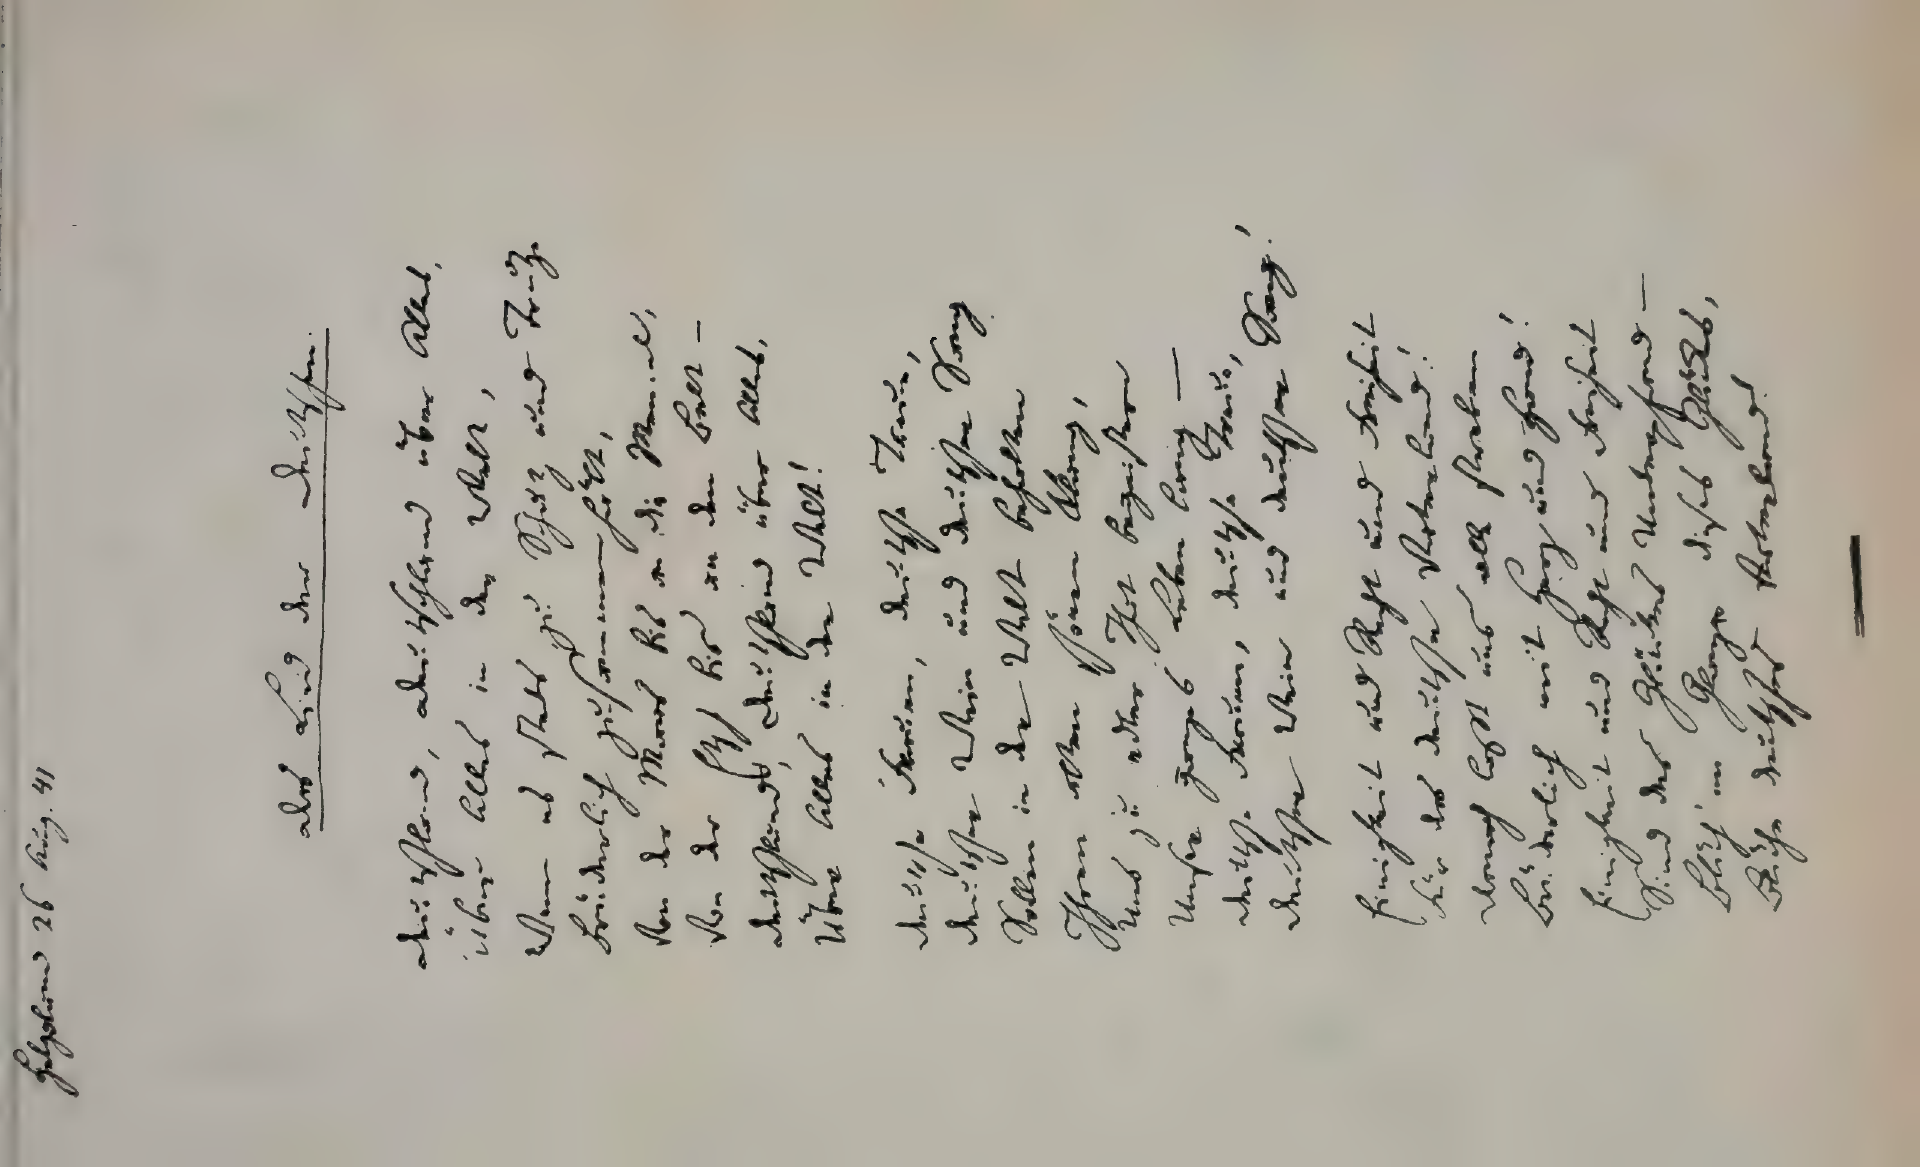 Helgoland 26 Aug. 41
Das Lied der Deutschen.
Deutschland, Deutschland über Alles,
Über Alles in der Welt,
Wenn es stets zu Schutz und Trutze
Brüderlich zusammenhält,
Von der Maas bis an die Memel,
Von der Etsch bis an den Belt –
Deutschland, Deutschland über Alles,
Über Alles in der Welt!
Deutsche Frauen, deutsche Treue,
Deutscher Wein und deutscher Sang
Sollen in der Welt behalten
Ihren alten schönen Klang,
Uns zu edler That begeistern
Unser ganzes Leben lang –
Deutsche Frauen, deutsche Treue,
Deutscher Wein und deutscher Sang!
Einigkeit und Recht und Freiheit
Für das deutsche Vaterland!
Danach laßt uns alle streben
Brüderlich mit Herz und Hand!
Einigkeit und Recht und Freiheit
Sind des Glückes Unterpfand –
Blüh' im Glanze dieses Glückes,
Blühe deutsches Vaterland!